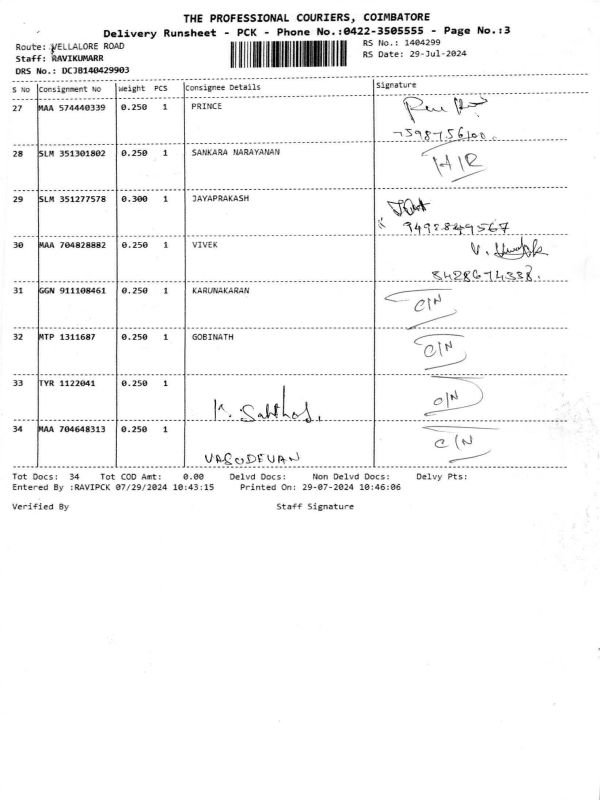 THE PROFESSIONAL COURIERS, COIMBATORE
Delivery Runsheet - PCK - Phone No.:0422-3505555 - Page No.:3
Route: VELLALORE ROAD RS No.: 1404299
Staff: RAVIKUMARR RS Date: 29-Jul-2024
DRS No.: DCJB140429903
S No Consignment No Weight PCS Consignee Details Signature
27 MAA 574440339 0.250 1 PRINCE
7598756100.
28 SLM 351301802 0.250 1 SANKARA NARAYANAN H/R
29 SLM 351277578 0.300 1 JAYAPRAKASH
9498849567
30 MAA 704828882 0.250 1 VIVEK
8428674338.
31 GGN 911108461 0.250 1 KARUNAKARAN C/N
32 MTP 1311687 0.250 1 GOBINATH C/N
33 TYR 1122041 0.250 1 C/N
34 MAA 704648313 0.250 1 C/N
VASUDEVAN
Tot Docs: 34 Tot COD Amt: 0.00 Delvd Docs: Non Delvd Docs: Delvy Pts:
Entered By :RAVIPCK 07/29/2024 10:43:15 Printed On: 29-07-2024 10:46:06
Verified By Staff Signature